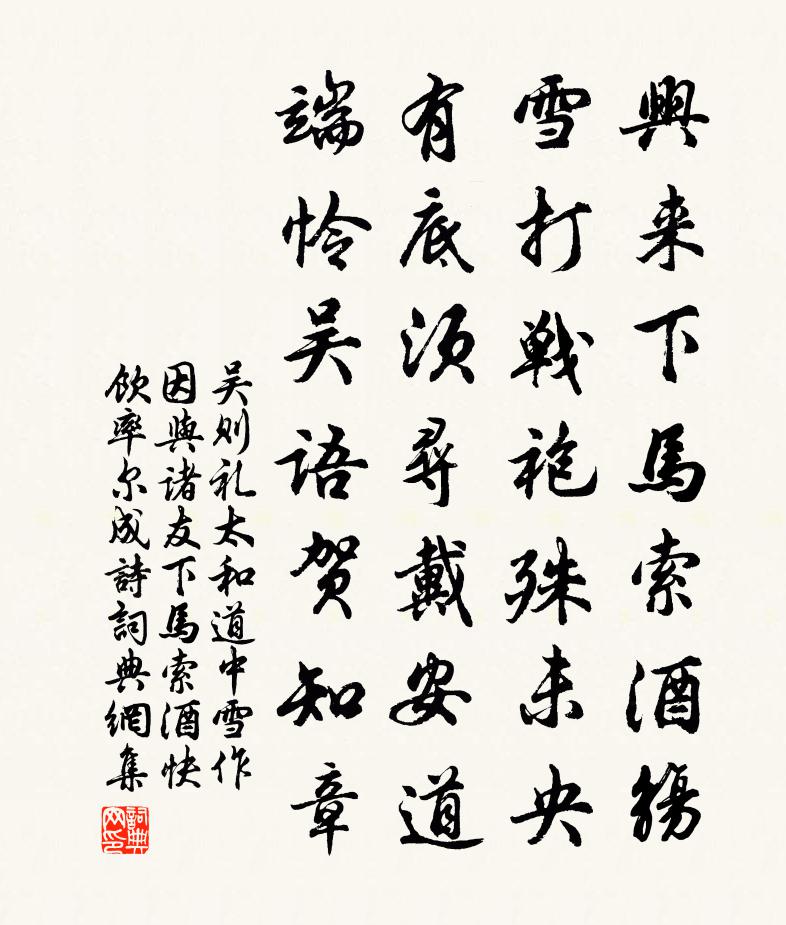 興来下馬索酒觴
雪打戦袍殊未央
有底須尋戴安道
端怜吴語贺知章
吴则礼太和道中雪作
因與诸友下馬索酒快
飲率尔成詩詞典網集
詞典网印